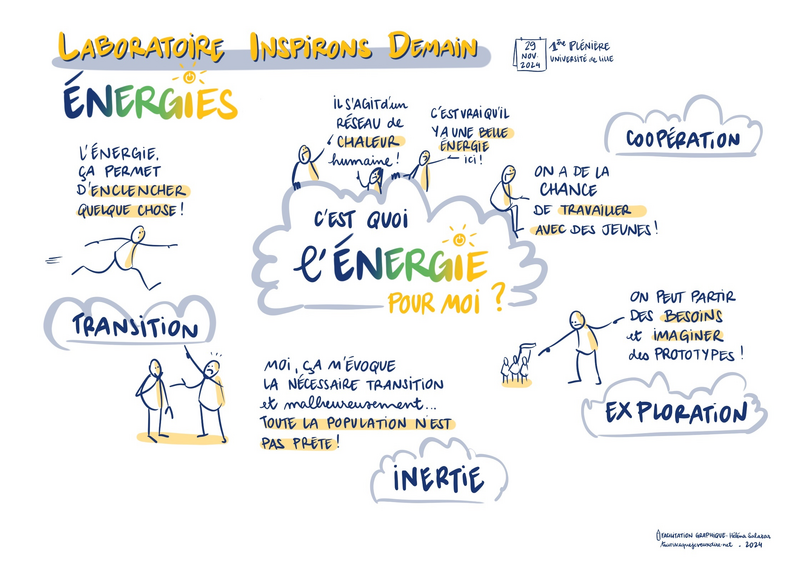 LABORATOIRE INSPIRONS DEMAIN
29
NOV.
2024
1ère PLÉNIÈRE
UNIVERSITÉ de LILLE
ÉNERGIES
L'ÉNERGIE,
ÇA PERMET
D'ENCLENCHER
QUELQUE CHOSE !
IL S'AGIT d'un
RÉSEAU de
CHALEUR
humaine !
C'EST VRAI QU'IL
Y A UNE BELLE
ÉNERGIE
ici !
COOPÉRATION
ON A DE LA
CHANCE
DE TRAVAILLER
AVEC DES JEUNES !
C'EST QUOI
l'ÉNERGIE
POUR MOI ?
TRANSITION
ON PEUT PARTIR
DES BESOINS
et IMAGINER
des PROTOTYPES !
MOI, ÇA M'ÉVOQUE
LA NÉCESSAIRE TRANSITION
et malheureusement...
TOUTE LA POPULATION N'EST
PAS PRÊTE !
EXPLORATION
INERTIE
FACILITATION GRAPHIQUE • Héléna Salazar
. 2024